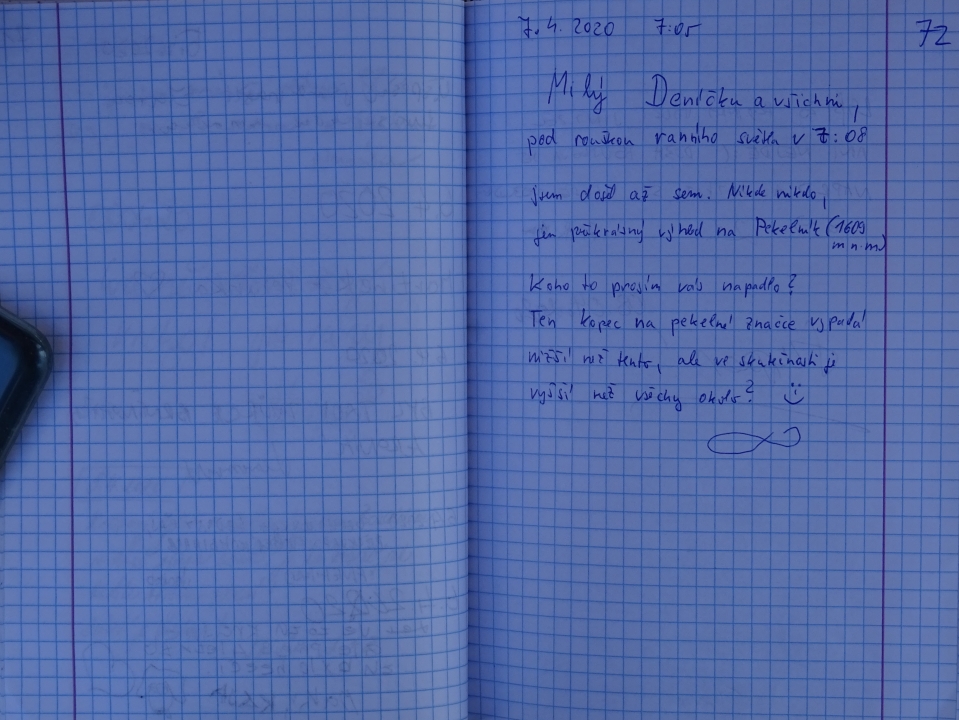 7.4. 2020 7:05
72
Milý Deníčku a všichni,
pod rouškou ranního světla v 7:08
jsem došel až sem. Nikde nikdo,
jen překrásný výhled na Pekelník (1609
m n.m)
Koho to prosím vás napadlo?
Ten kopec na pekelné značce vypadá
nižší než tento, ale ve skutečnosti je
vyšší než všechy okolo? :)